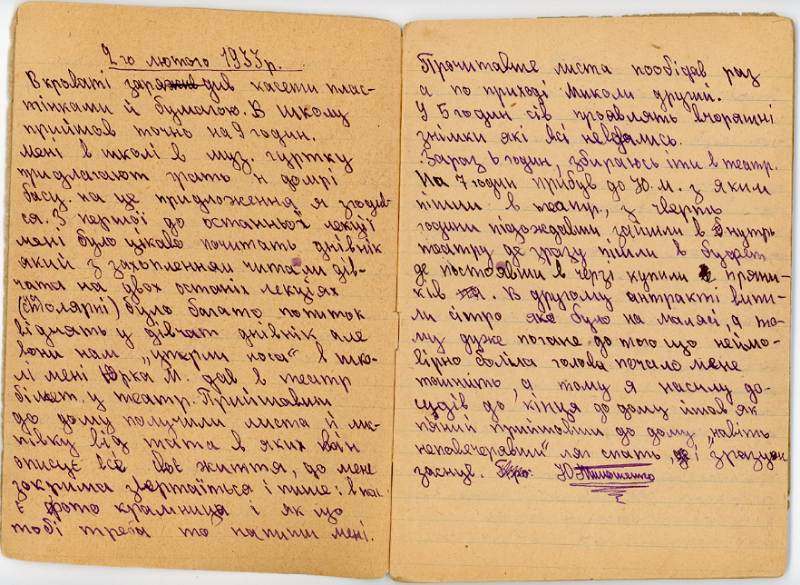 2го лютого 1933р.
В кроваті заряжив дів касети плас-
тінками й бумагою. В школу
прийшов точно на 9 годин.
Мені в школі в муз. гуртку
придлагают грать н домрі
басу. на це придложення я згодив-
ся. З першої до останньої лекції
мені було цікаво почитать днівнік
який з захопленням читали дів-
чата на двох останіх лекціях
(столярні) було багато попиток
віднять у дівчат днівнік але
вони нам „утерли носа" в шко-
лі мені Юрка М. дав в театр
білет у театр. Прийшовши
до дому получили листа й
від тата в яких він
описує все своє життя, до мене
зокрима звертається і пише: в нас
є фото крамниця і як що
тобі треба то напиши мені.
Прочитавше листа пообідав раз
а по приході Миколи другий.
У 5 годин сів проявлять вчорашні
знімки які всі невдались.
Зараз 6 годин, збираюсь іти в театр.
На 7 годин прибув до Ю.М. з яким
пішли в театр, з чверть
години підождавши зайшли в внутрь
театру де зразу пішли в буфет
де постоявши в черзі купили пряни-
ків. В другому антракті випи-
ли сітро яке було на малясі, а то-
му дуже погане до того що неймо-
вірно боліла голова почало мене
тошнить, а тому я насилу до-
судів до кінця до дому йшов як
пяний прийшовши до дому „навіть
неповечерявши" ліг спать, і зразуж
заснув.